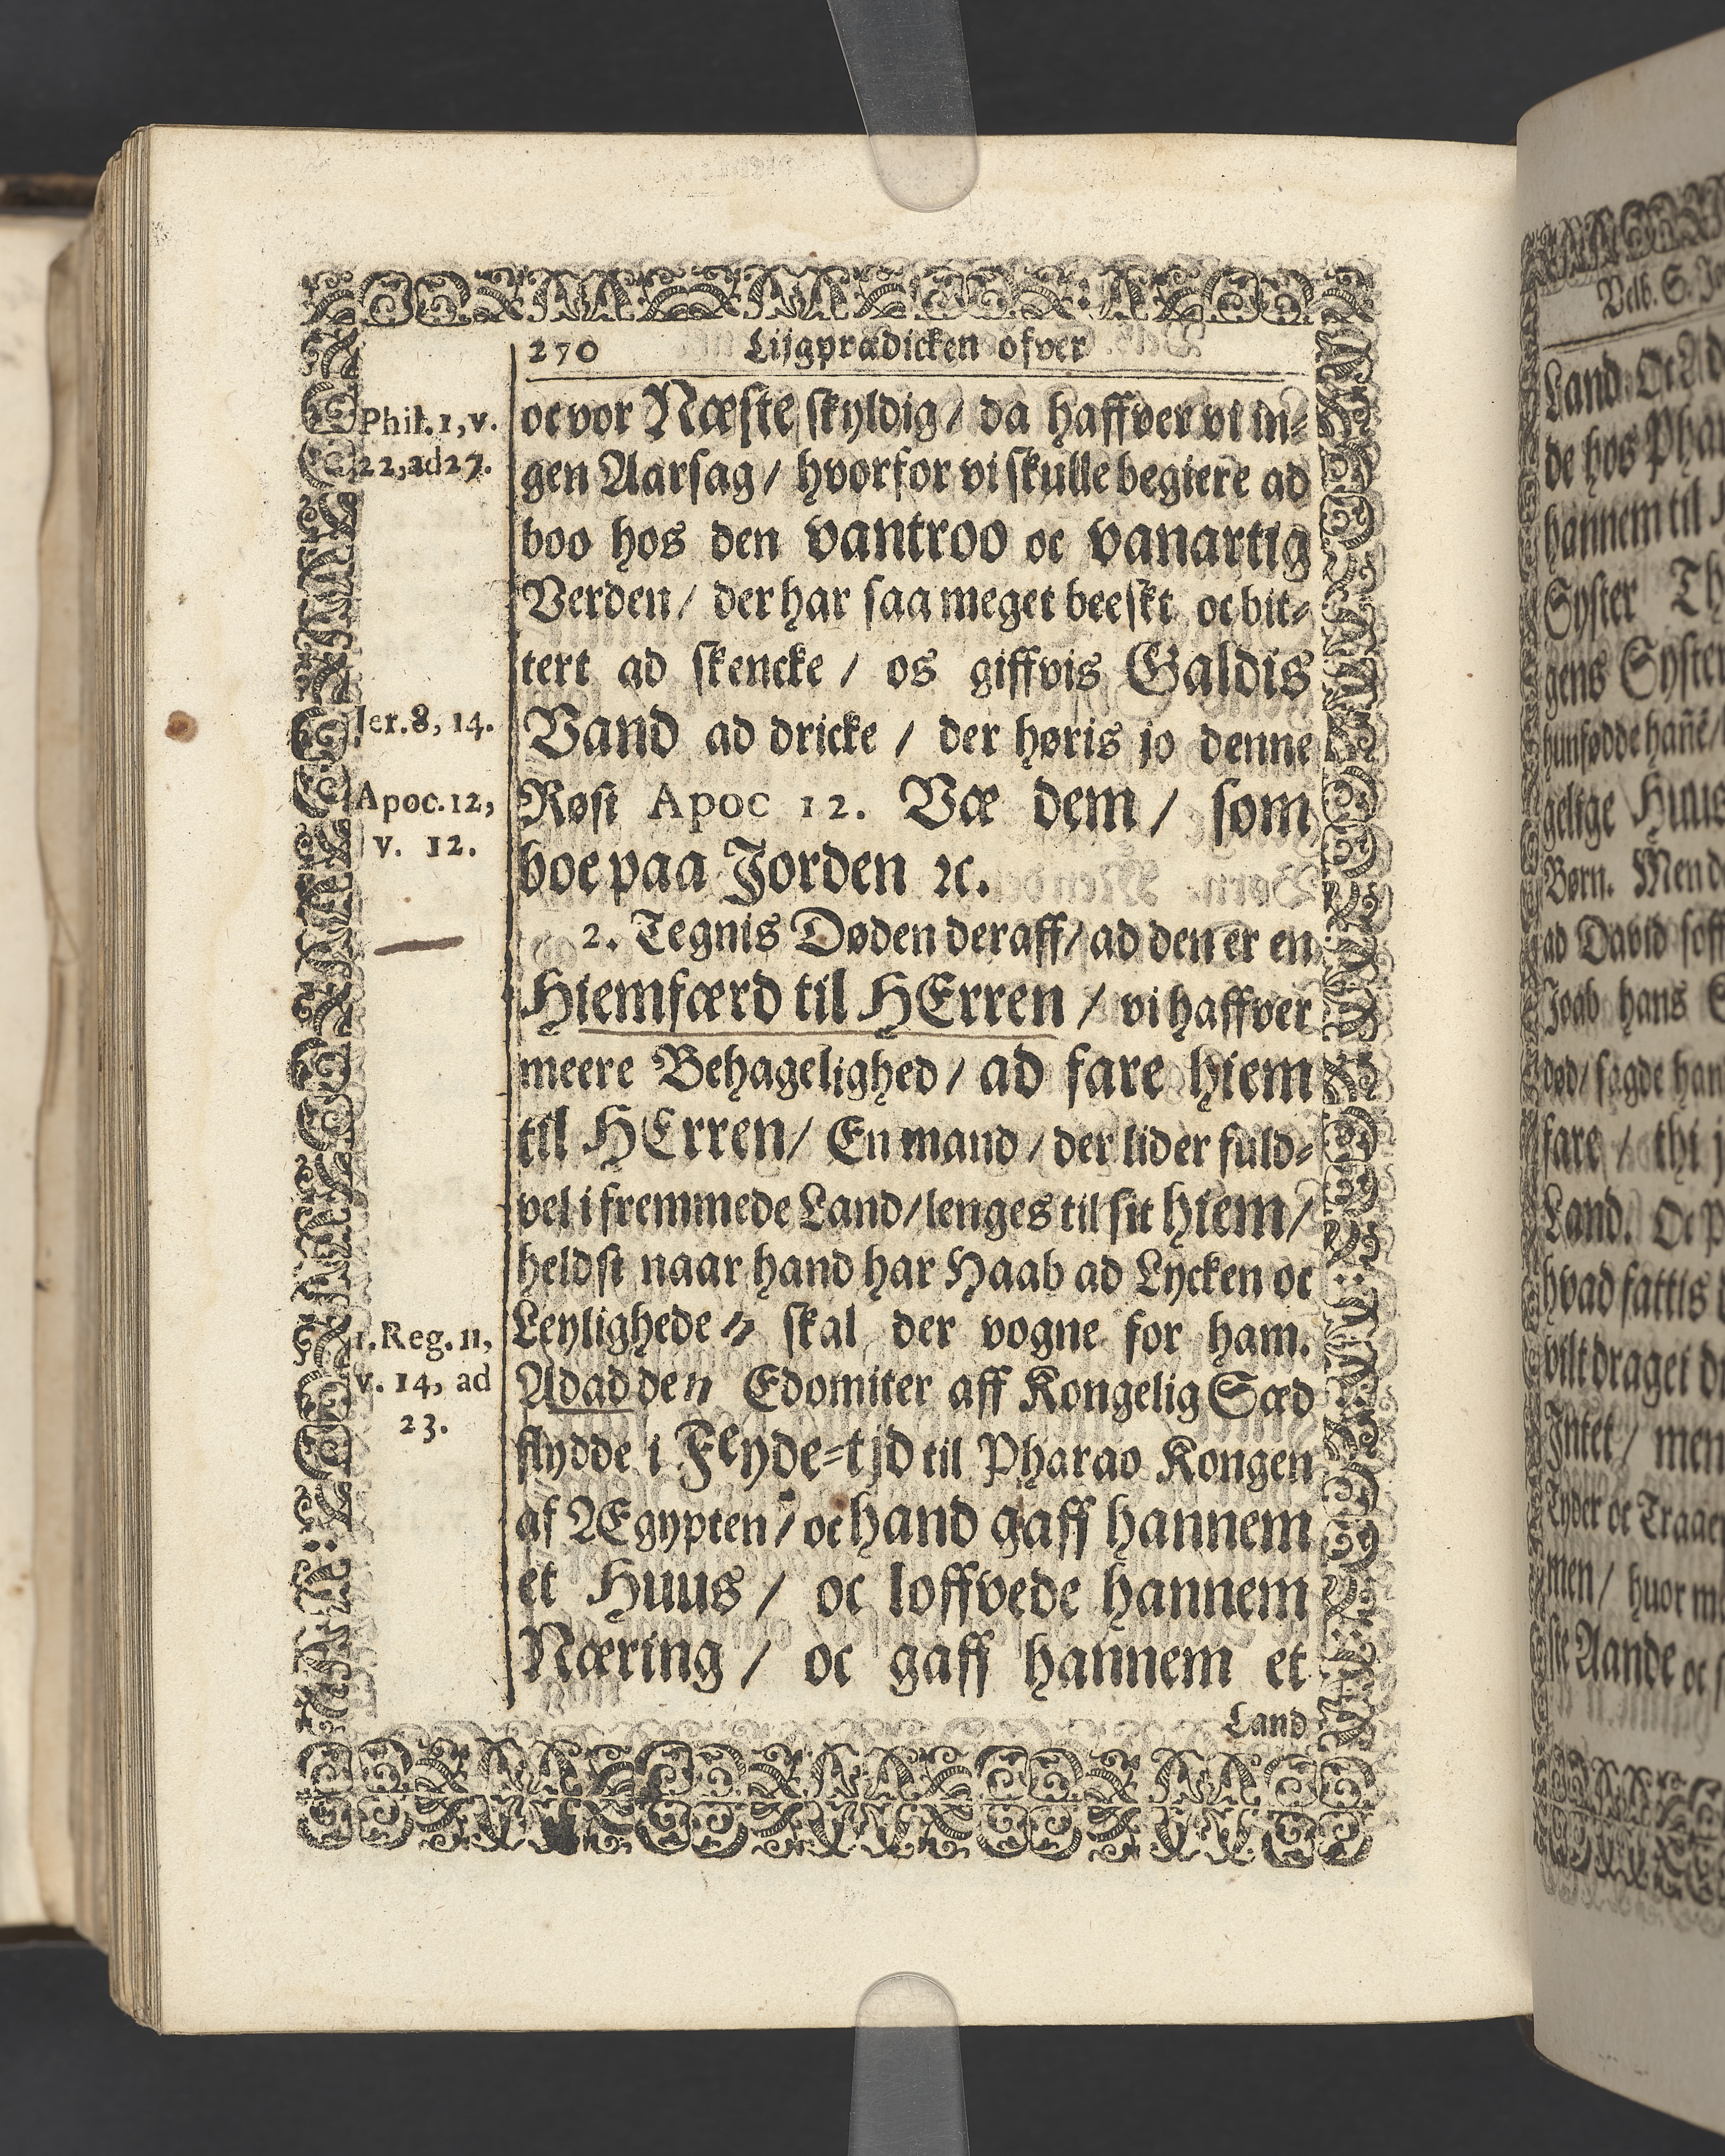 270 Lijgprædicken ofver
Phil. 1, v.
22, ad 27.
oc vor Næste skyldig / da haffver vi in-
gen Aarsag / hvorfor vi skulle begiere ad
boo hos den vantroo oc vanartig
Verden / der har saa meget beeskt oc bit-
tert ad skencke / os giffvis Galdis
Ier. 8, 14.
Vand ad dricke / der høris jo denne
Apoc. 12,
v. 12.
Røst Apoc 12. Væ dem / som
boe paa Jorden ꝛc.
2. Tegnis Døden deraff / ad den er en
Hiemfærd til HErren / vi haffver
meere Behagelighed / ad fare hiem
til HErren / En mand / der lider fuld-
vel i fremmede Land / lenges til sit hiem /
heldst naar hand har Haab ad Lycken oc
Leyligheden skal der vogne for ham.
1. Reg. 11,
v. 14, ad
23.
Adad den Edomiter aff Kongelig Sæd
flydde i Feyde-tjd til Pharao Kongen
af Ægypten / oc hand gaff hannem
et Huus / oc loffvede hannem
Næring / oc gaff hannem et
Land
Velb. S.
Land. Oc Ad
de hos Phar
hannem til
Syster Th
gens Syster
hunfødde hañẽ /
gelige Huus
Børn. Men d
ad David soff
Joab hans
død / sagde han
fare / thi j
Land. Oc P
hvad fattis
vilt draget
Intet / men
Tyder oc Traaer
men / huor
ste Aande oc